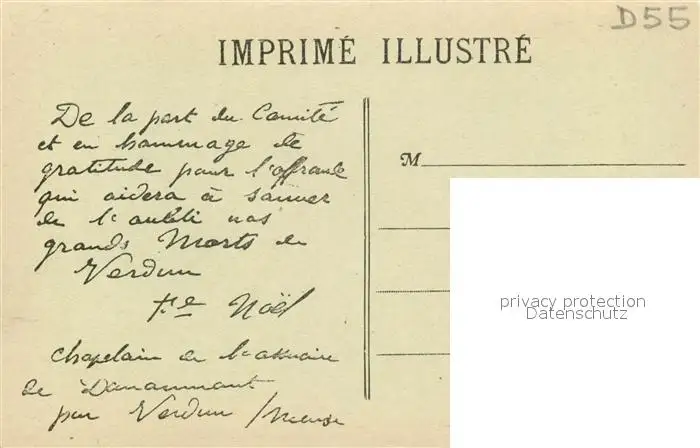 D55
IMPRIMÉ ILLUSTRÉ
De la part du Comité
et en hommage de
gratitude pour l'offrande
qui aidera à sauver
de l'oubli nos
grands Morts de
Verdun
Noël
Chapelain de l'ossuaire
de Douaumont
par Verdun / Meuse
M
privacy protection
Datenschutz